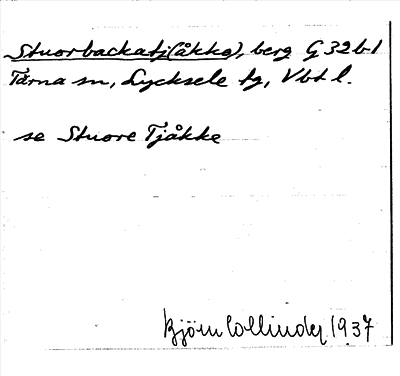 Stuorbackatj(åkko), berg G 32 b 1
Tärna sn, Lycksele tg, Vbt l.
se Stuore Tjåkke
Björn Collinder 1937